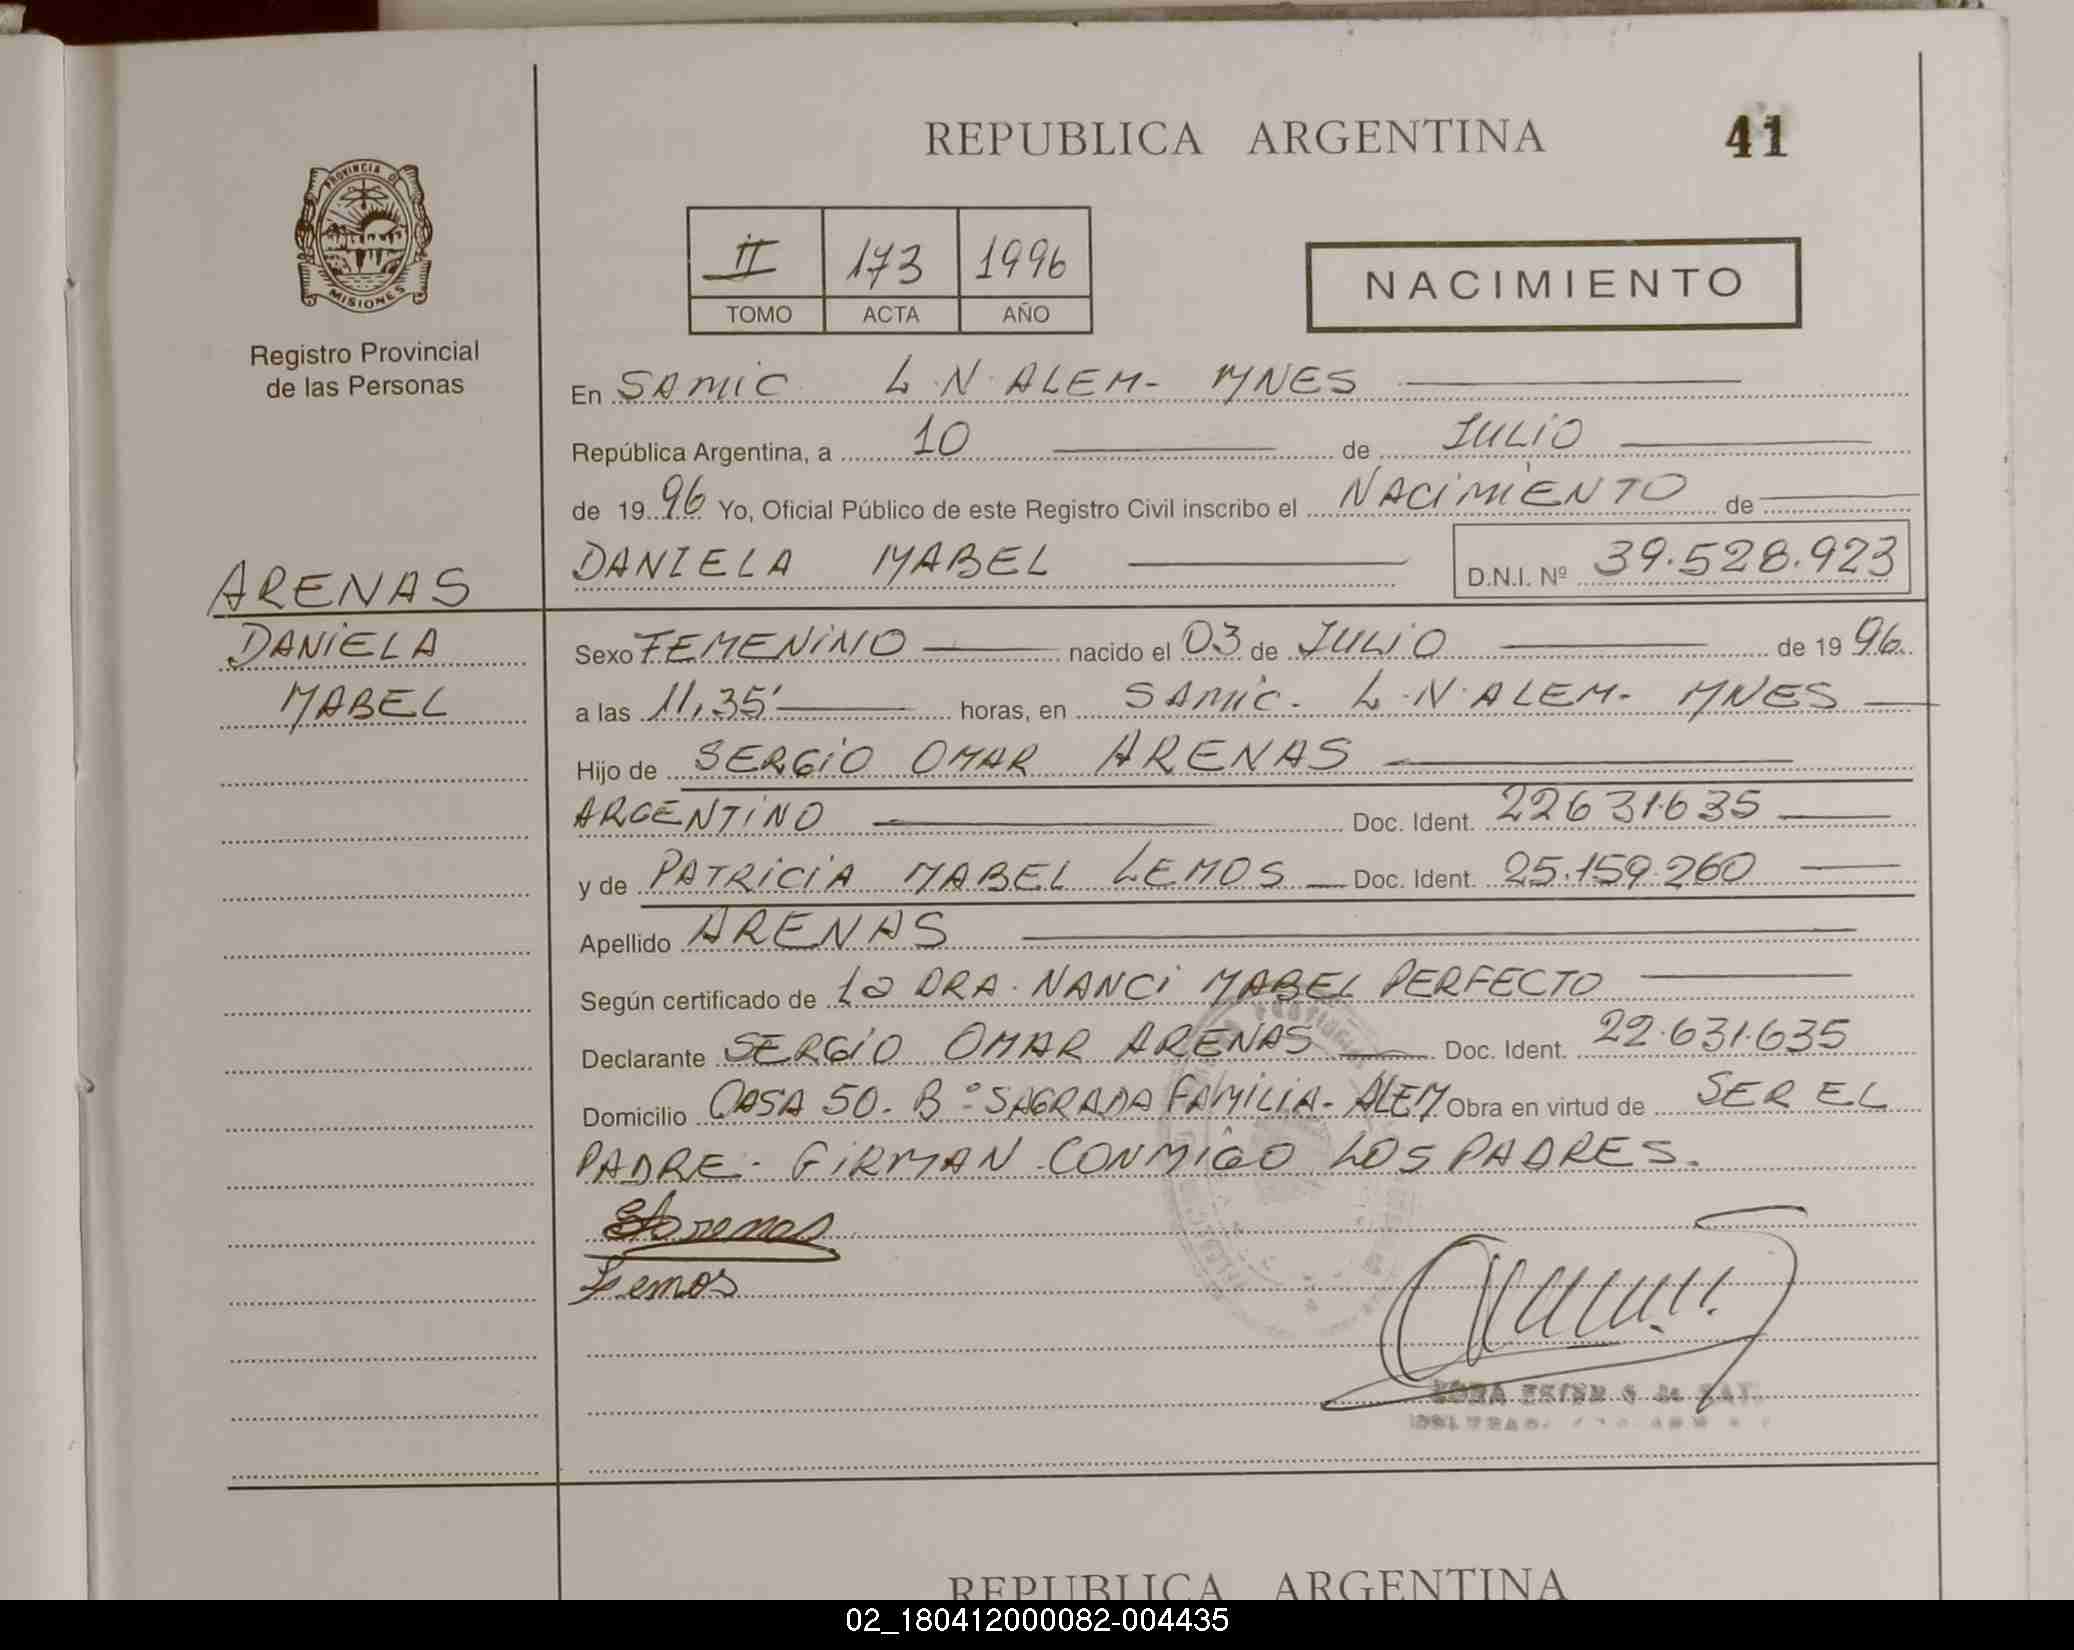 REPUBLICA ARGENTINA 41
PROVINCIA DE
MISIONES
Registro Provincial
de las Personas
II 173 1996
TOMO ACTA AÑO
NACIMIENTO
En SAMIC L.N.ALEM- MNES
República Argentina, a 10 de JULIO
de 1996 Yo, Oficial Público de este Registro Civil inscribo el NACIMIENTO de
DANIELA MABEL D.N.I. Nº 39.528.923
ARENAS
DANIELA
MABEL
Sexo FEMENINO nacido el 03 de JULIO de 1996.
a las 11,35' horas, en SAMIC. L.N.ALEM- MNES
Hijo de SERGIO OMAR ARENAS
ARGENTINO Doc. Ident. 22631.635
y de PATRICIA MABEL LEMOS Doc. Ident. 25.159.260
Apellido ARENAS
Según certificado de La DRA. NANCI MABEL PERFECTO
Declarante SERGIO OMAR ARENAS Doc. Ident. 22.631.635
Domicilio CASA 50. Bº SAGRADA FAMILIA- ALEM Obra en virtud de SER EL
PADRE. FIRMAN CONMIGO LOS PADRES.
Arenas
Lemos
REPUBLICA ARGENTINA
02_180412000082-004435